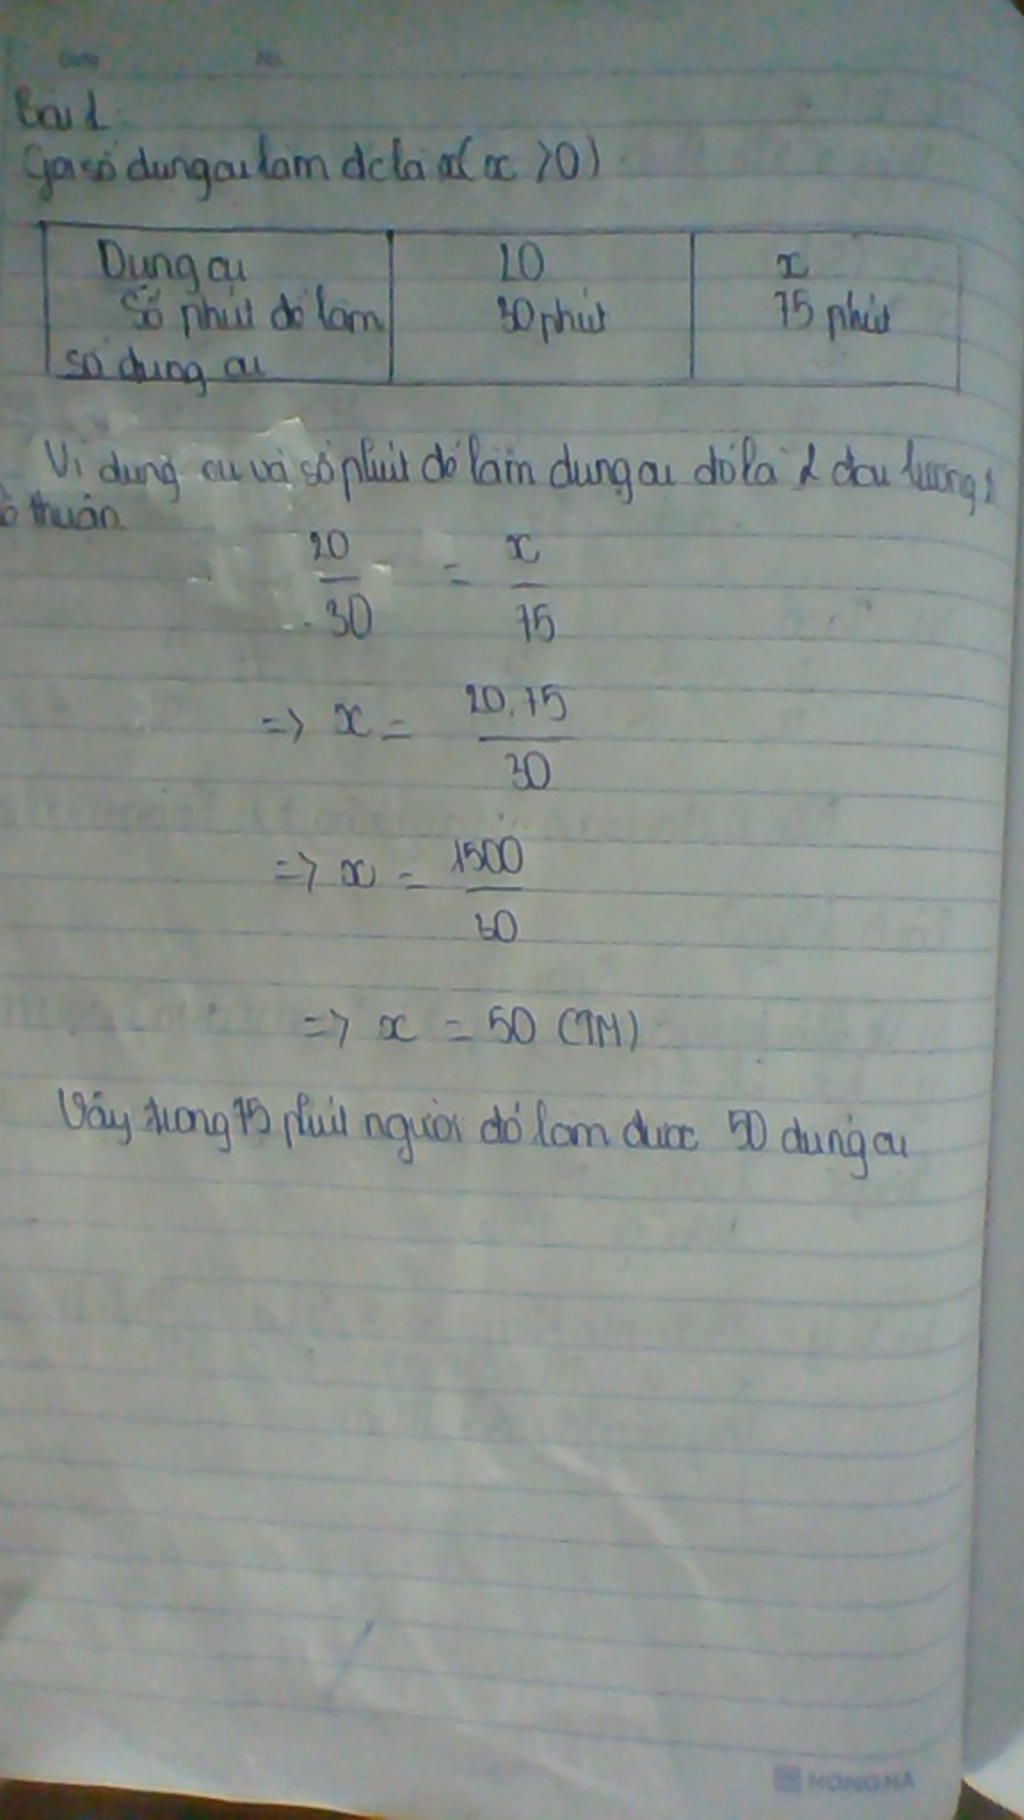 Bài 1
Gọi số dụng cụ làm đc là x (x > 0)
Dụng cụ 20 x
Số phút đó làm 30 phút 75 phút
số dụng cụ
Vì dụng cụ và số phút đó làm dụng cụ đó là 2 đại lượng
thuận
20/30 = x/75
=> x = 20.75/30
=> x = 1500/30
=> x = 50 (TM)
Vậy trong 75 phút người đó làm được 50 dụng cụ
HONG HA